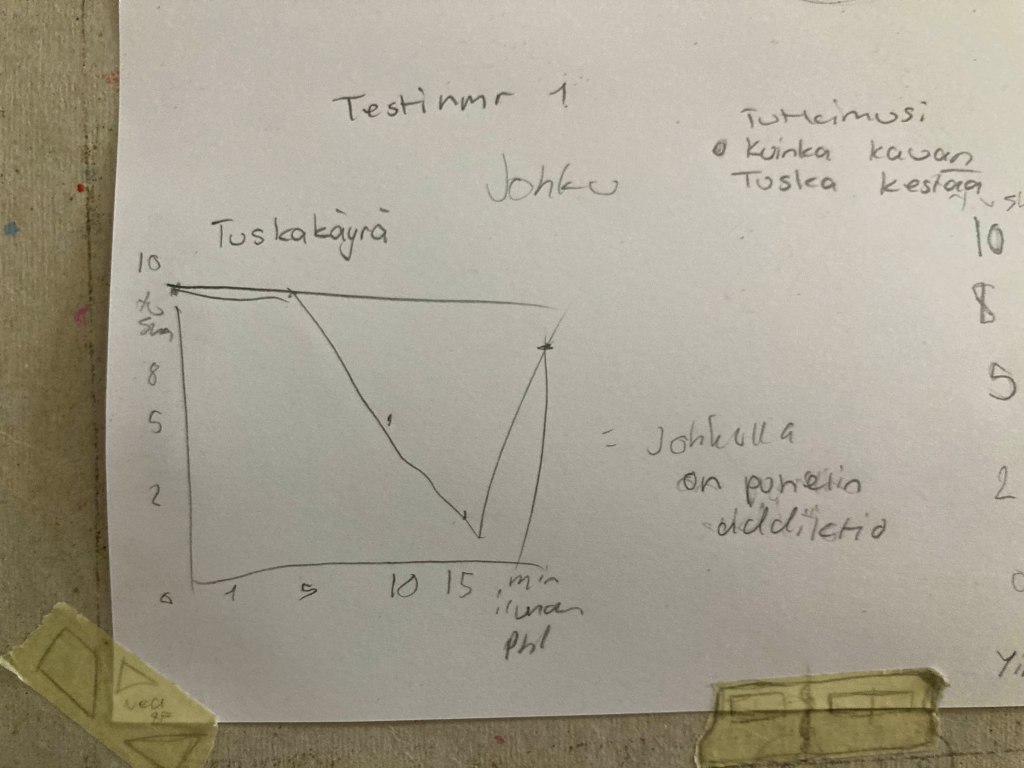 Testi nmr 1
Tutkimusi
• Kuinka kauan
Tuska kestää
Johku
Tuskakäyrä
10
8
5
2
0 1 5 10 15 min
ilman
= Johkulla
on puhelin
addiktio
10
8
5
2